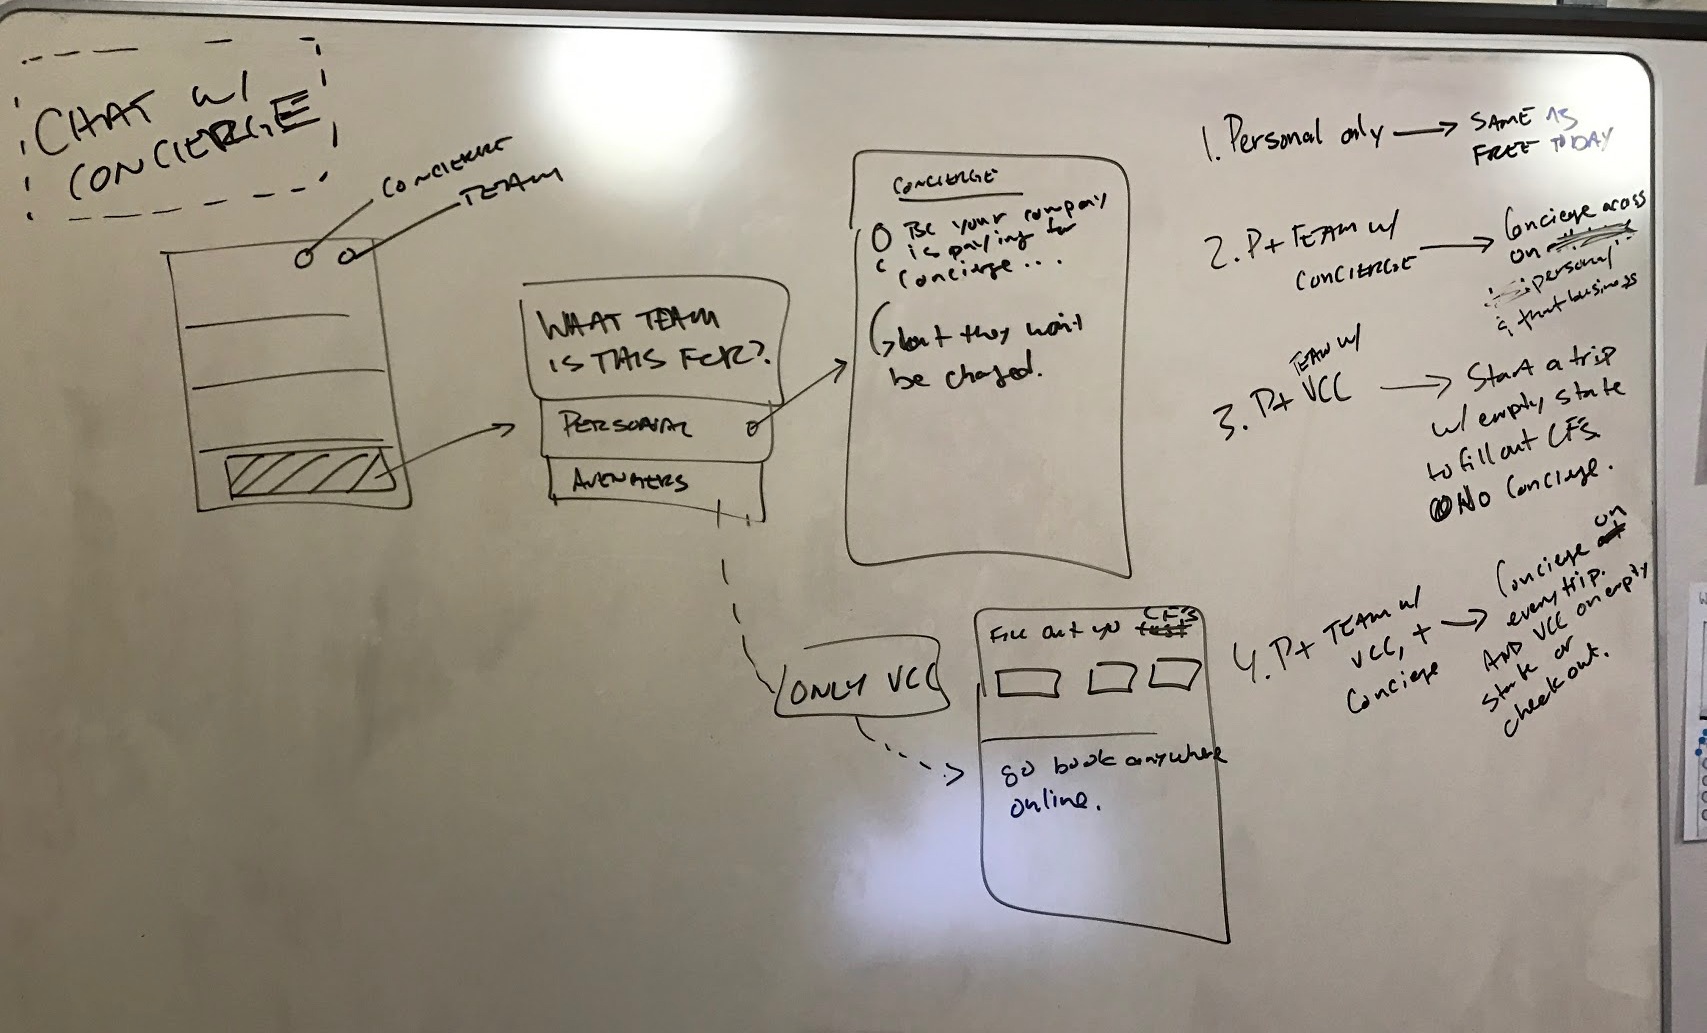 CHAT w/
CONCIERGE
CONCIERGE
TEAM
WHAT TEAM
IS THIS FOR?
PERSONAL
AVENGERS
CONCIERGE
Bc your company
is paying for
concierge ...
but they won't
be charged.
ONLY VCC
FILL out yo CF's
go book anywhere
online.
1. Personal only → SAME AS
FREE TODAY
2. P + TEAM w/
CONCIERGE
→ Concierge access
on
personal
& that business
3. P + TEAM w/
VCC
→ Start a trip
w/ empty state
to fill out CFs.
No Concierge.
4. P + TEAM w/
VCC, +
Concierge
→ Concierge on
every trip.
AND VCC on empty
state or
checkout.